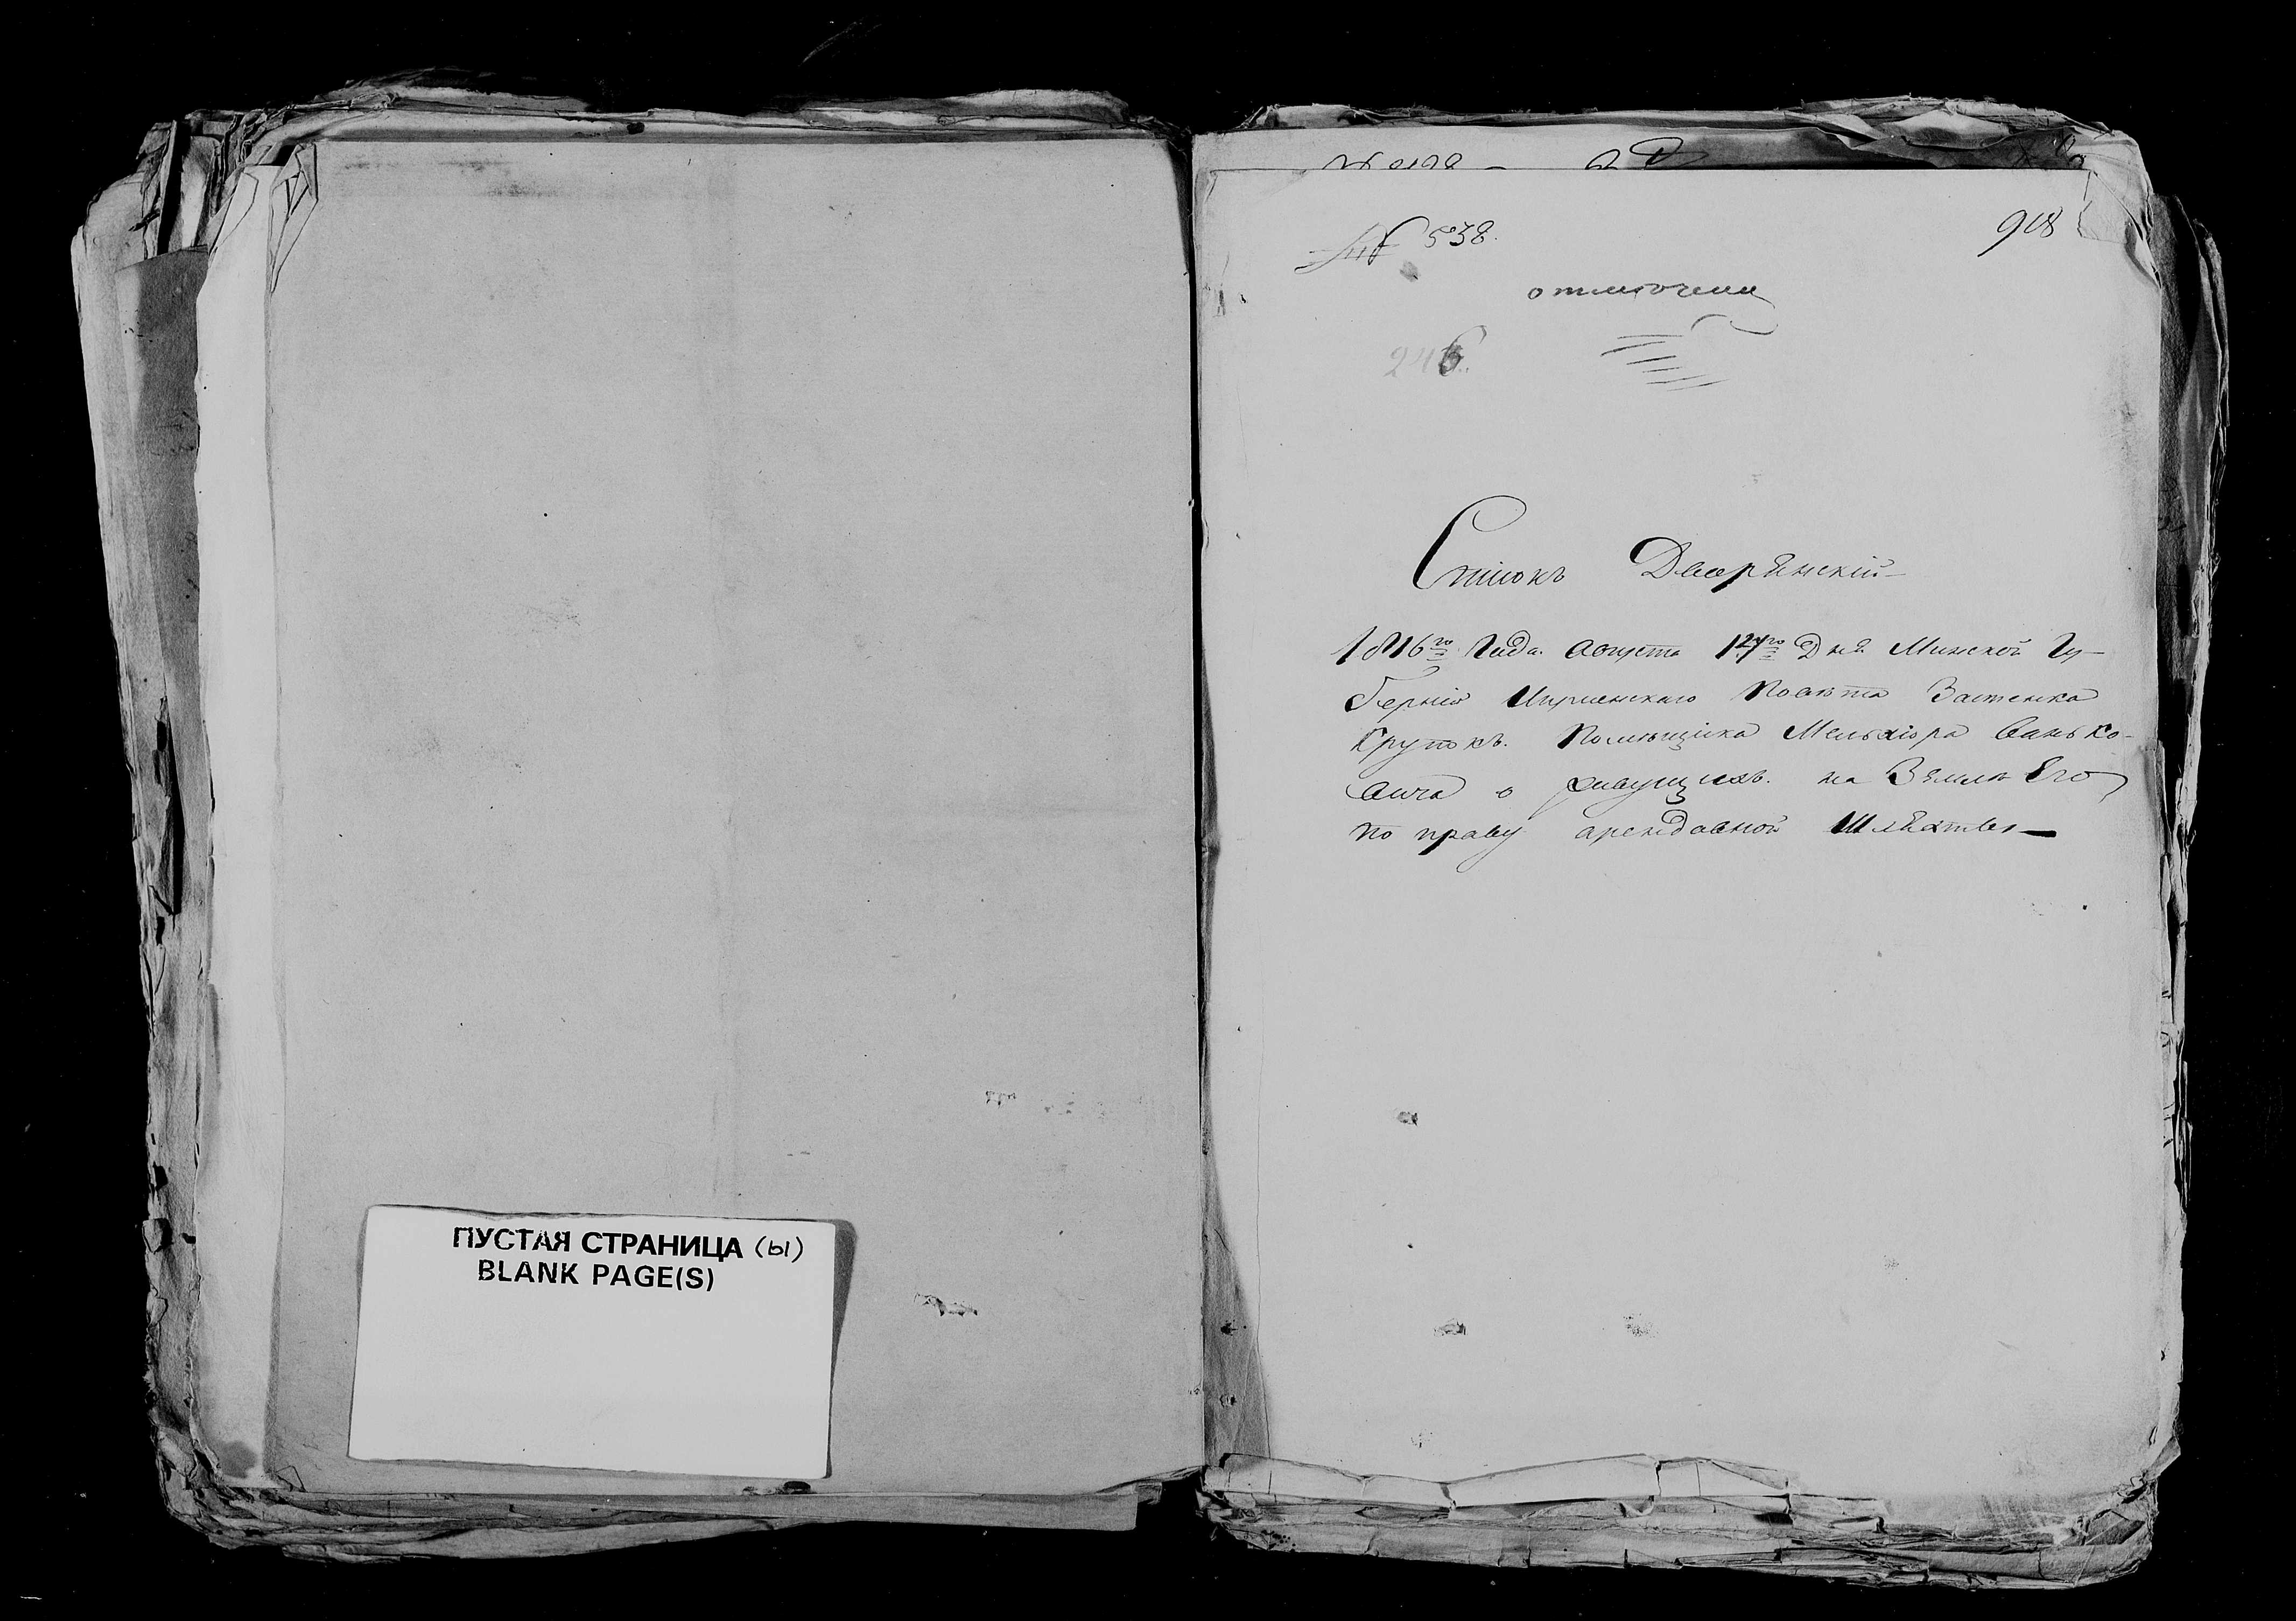 ПУСТАЯ СТРАНИЦА (ы)
BLANK PAGE(S)
№ 538.
908
отмечены
246.
Список Дворянский
1816го Года Августа 17го Дня Минской Гу-
бернiи Игуменскаго Повѣта Застенка
Крутокъ. Помѣщика Мельхiора Ванько-
вича о живущихъ. на Землѣ Его
по праву арендовной Шляхты